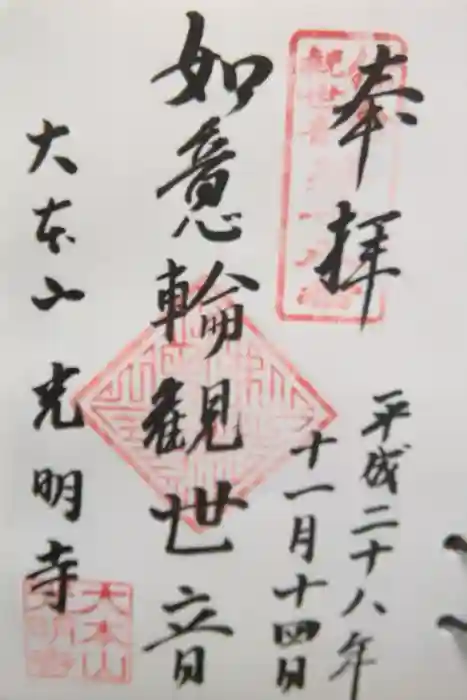 奉拝
平成二十八年
十一月十四日
如意輪觀世音
大本山光明寺
大本山
光明寺